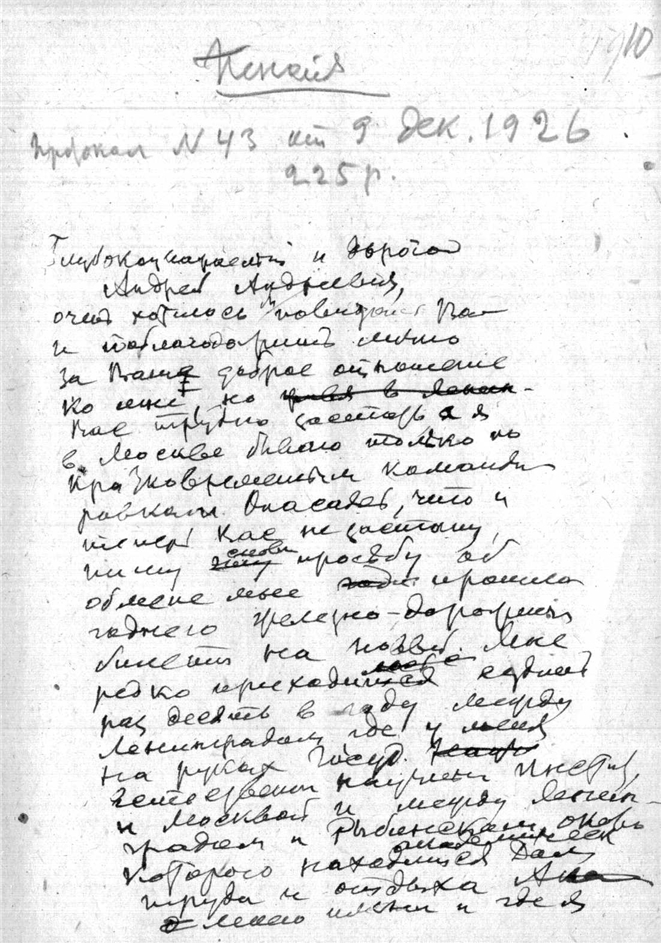 1910
Пенсия
Протокол N 43 от 9 дек. 1926
225 р.
Глубокоуважаемый и дорогой
Андрей Андреевич,
очень хотелось повидать Вас
и поблагодарить лично
за Ваше доброе отношение
ко мне, но
Вас трудно застать а я
в Москве бываю только по
кратковременным команди
ровкам. Опасаясь, что и
теперь Вас не застану,
пишу снова просьбу об
обмене мне прошло
годнего железно-дорожного
билета на новый. Мне
редко приходится ездить
раз десять в году между
Ленинградом где у меня
на руках Госуд.
Естествен научный Инстит,
и Москвой и между Ленин-
градом и Рыбинском, около
которого находится Дом
труда и отдыха
моего имени и где я